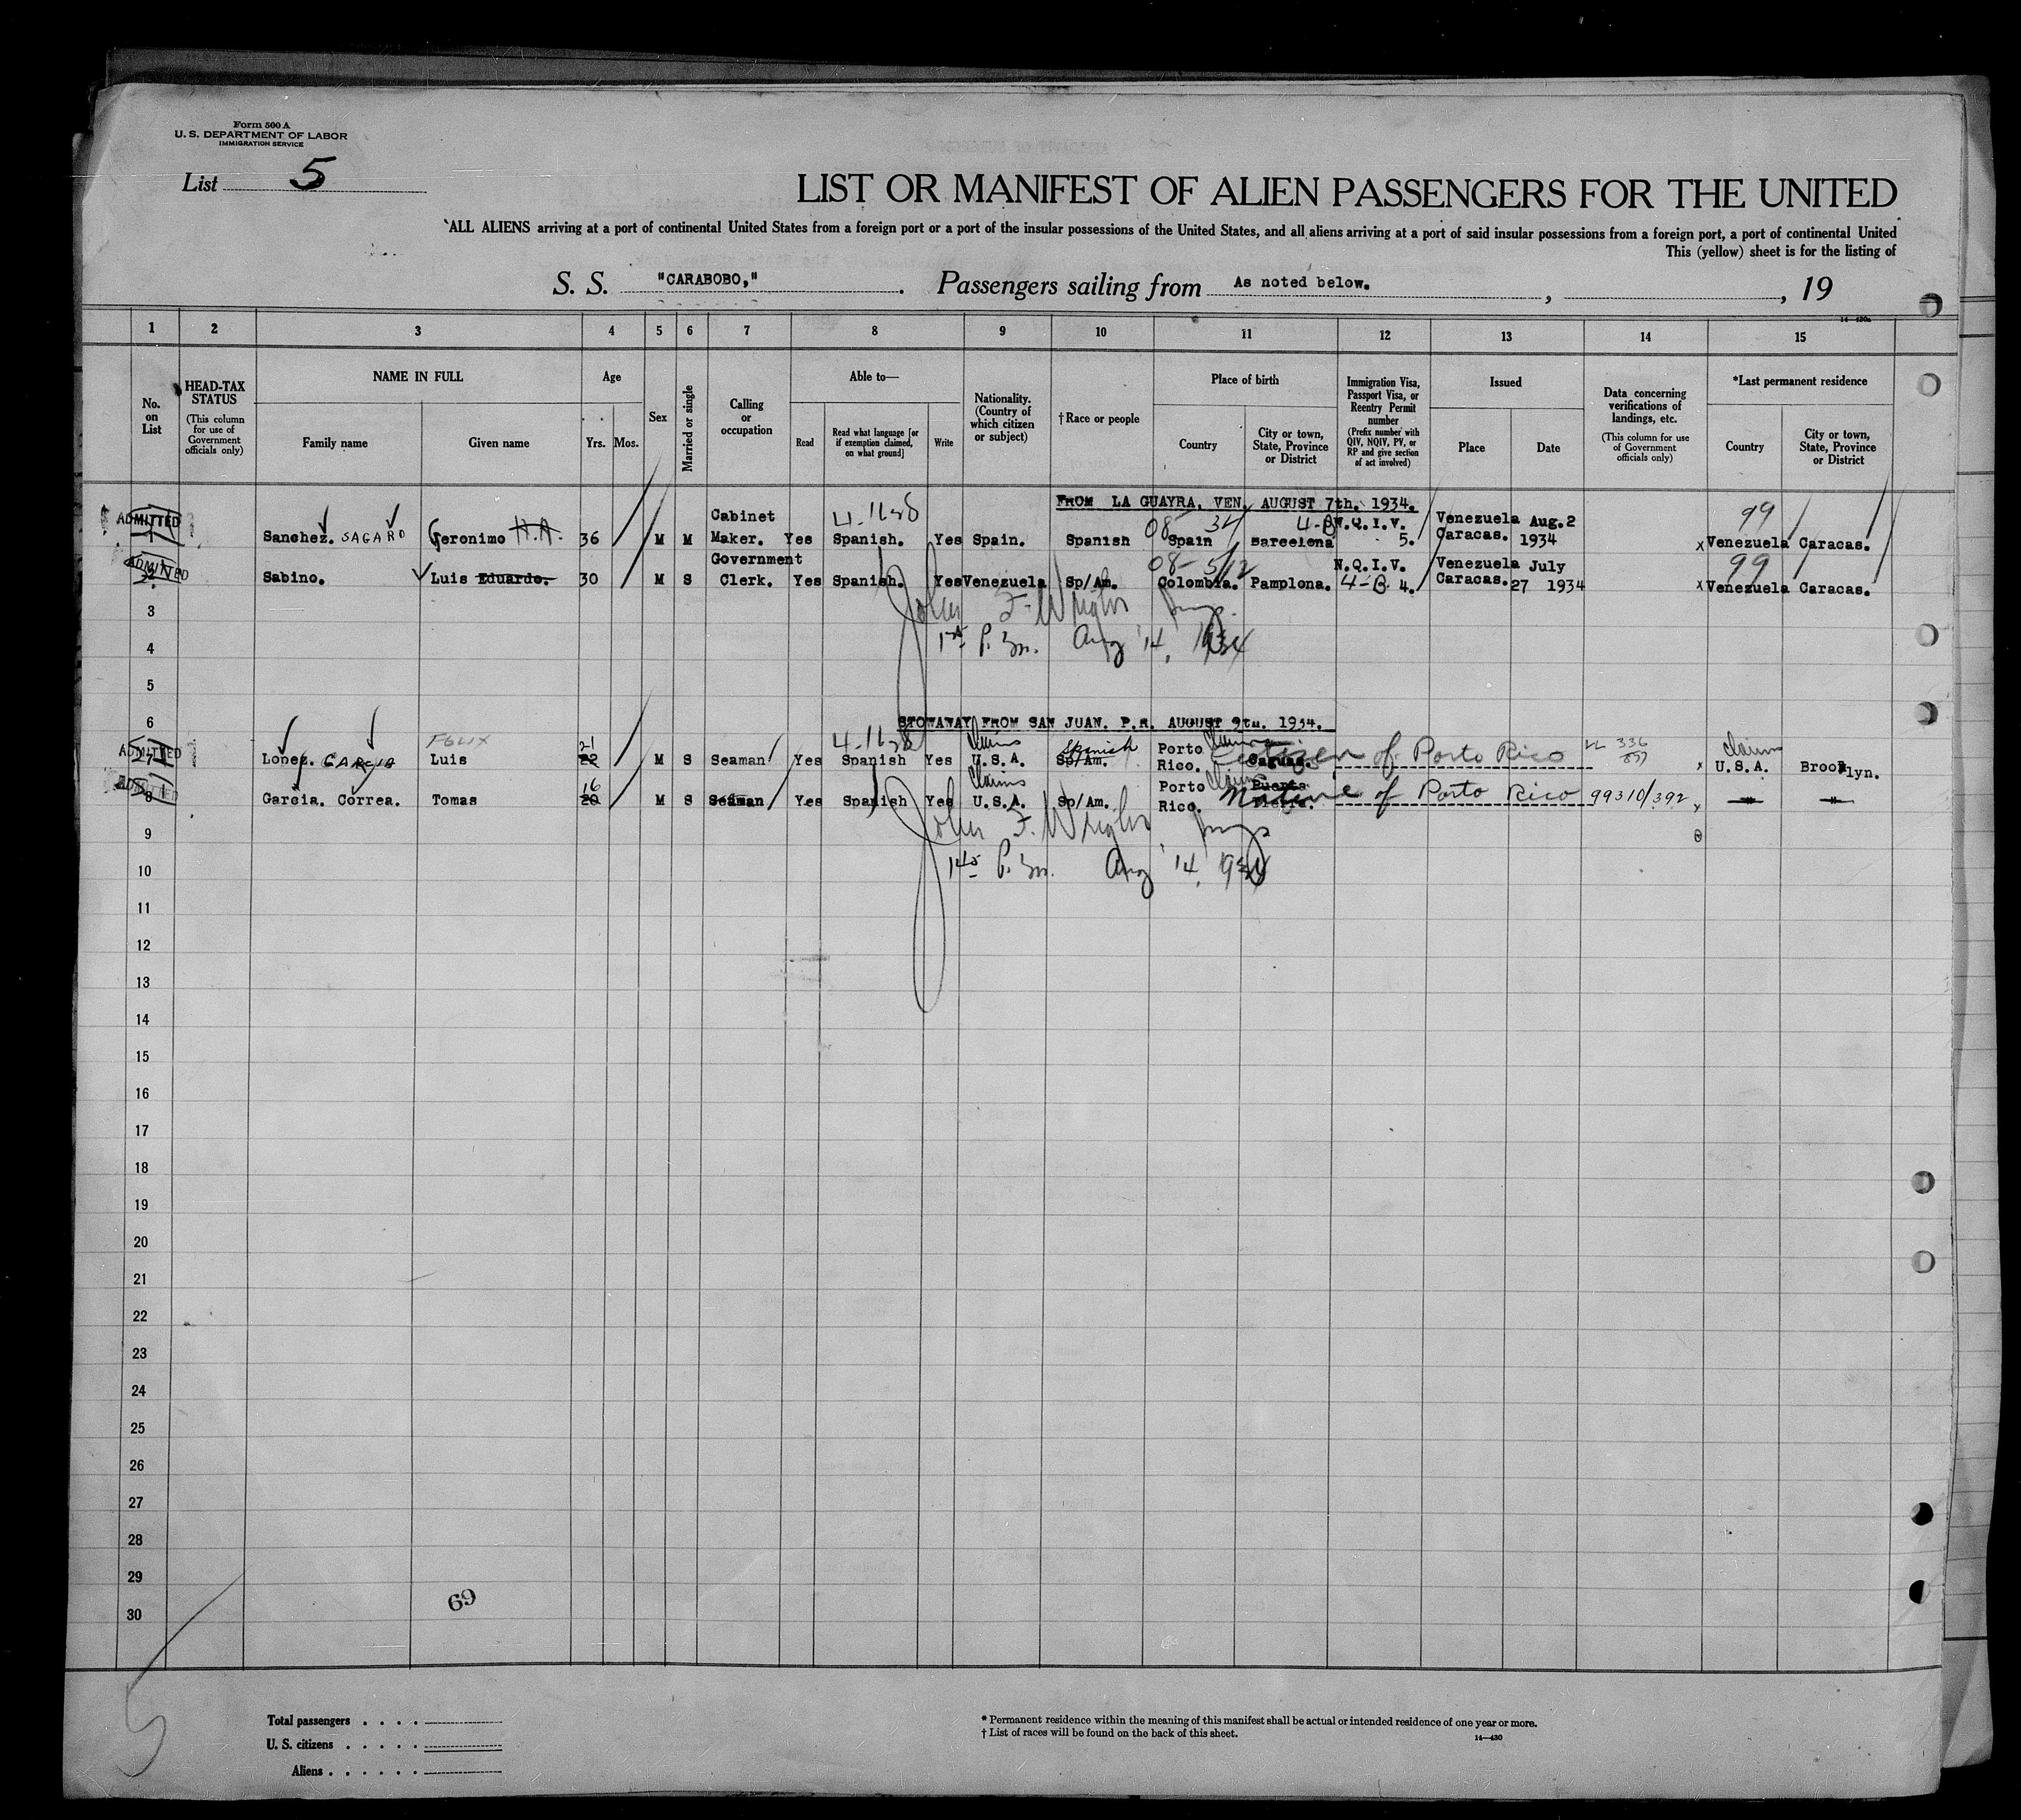 Form 500 A
U. S. DEPARTMENT OF LABOR
IMMIGRATION SERVICE
List 5
LIST OR MANIFEST OF ALIEN PASSENGERS FOR THE UNITED
ALL ALIENS arriving at a port of continental United States from a foreign port or a port of the insular possessions of the United States, and all aliens arriving at a port of said insular possessions from a foreign port, a port of continental United
This (yellow) sheet is for the listing of
S. S. "CARABOBO," . Passengers sailing from As noted below. , , 19
14—430a
1 2 3 4 5 6 7 8 9 10 11 12 13 14 15
No. on List
HEAD-TAX STATUS (This column for use of Government officials only)
NAME IN FULL
Family name Given name
Age
Yrs. Mos.
Sex
Married or single
Calling or occupation
Able to—
Read
Read what language [or if exemption claimed, on what ground]
Write
Nationality. (Country of which citizen or subject)
†Race or people
Place of birth
Country
City or town, State, Province or District
Immigration Visa, Passport Visa, or Reentry Permit number (Prefix number with QIV, NQIV, PV, or RP and give section of act involved)
Issued
Place Date
Data concerning verifications of landings, etc. (This column for use of Government officials only)
*Last permanent residence
Country
City or town, State, Province or District
FROM LA GUAYRA, VEN. AUGUST 7th. 1934.
ADMITTED 1 Sanchez. SAGARO Geronimo H.A. 36 M M Cabinet Maker. Yes 4-1628 Spanish. Yes Spain. Spanish 08 34 Spain 4-B Barcelona N.Q.I.V. 5. Venezuela Caracas. Aug. 2 1934 99 x Venezuela Caracas.
ADMITTED 2 Sabino. Luis Eduardo. 30 M S Government Clerk. Yes Spanish. Yes Venezuela Sp/Am. 08-5/12 Colombia. Pamplona. N.Q.I.V. 4-B 4. Venezuela Caracas. July 27 1934 99 x Venezuela Caracas.
3 John F. Wright Insp.
4 1st P. In. Aug 14, 1934
5
6 STOWAWAY FROM SAN JUAN. P.R. AUGUST 9th. 1934.
ADMITTED 7 Lopez. GARCIA FELIX Luis 21 22 M S Seaman Yes 4-1628 Spanish Yes Claims U.S.A. Spanish Sp/Am. Porto Rico. Claims Caguas. Citizen of Porto Rico 336 x Claims U.S.A. Brooklyn.
ADMITTED 8 Garcia. Correa. Tomas 16 20 M S Seaman Yes Spanish Yes Claims U.S.A. Sp/Am. Porto Rico. Claims Puerta Native of Porto Rico 99310/392 x
9 John F. Wright Insp
10 1st P. In. Aug 14, 1934
11
12
13
14
15
16
17
18
19
20
21
22
23
24
25
26
27
28
29
30
69
Total passengers . . . .
U. S. citizens . . . . .
Aliens . . . . . .
* Permanent residence within the meaning of this manifest shall be actual or intended residence of one year or more.
† List of races will be found on the back of this sheet.
14—430